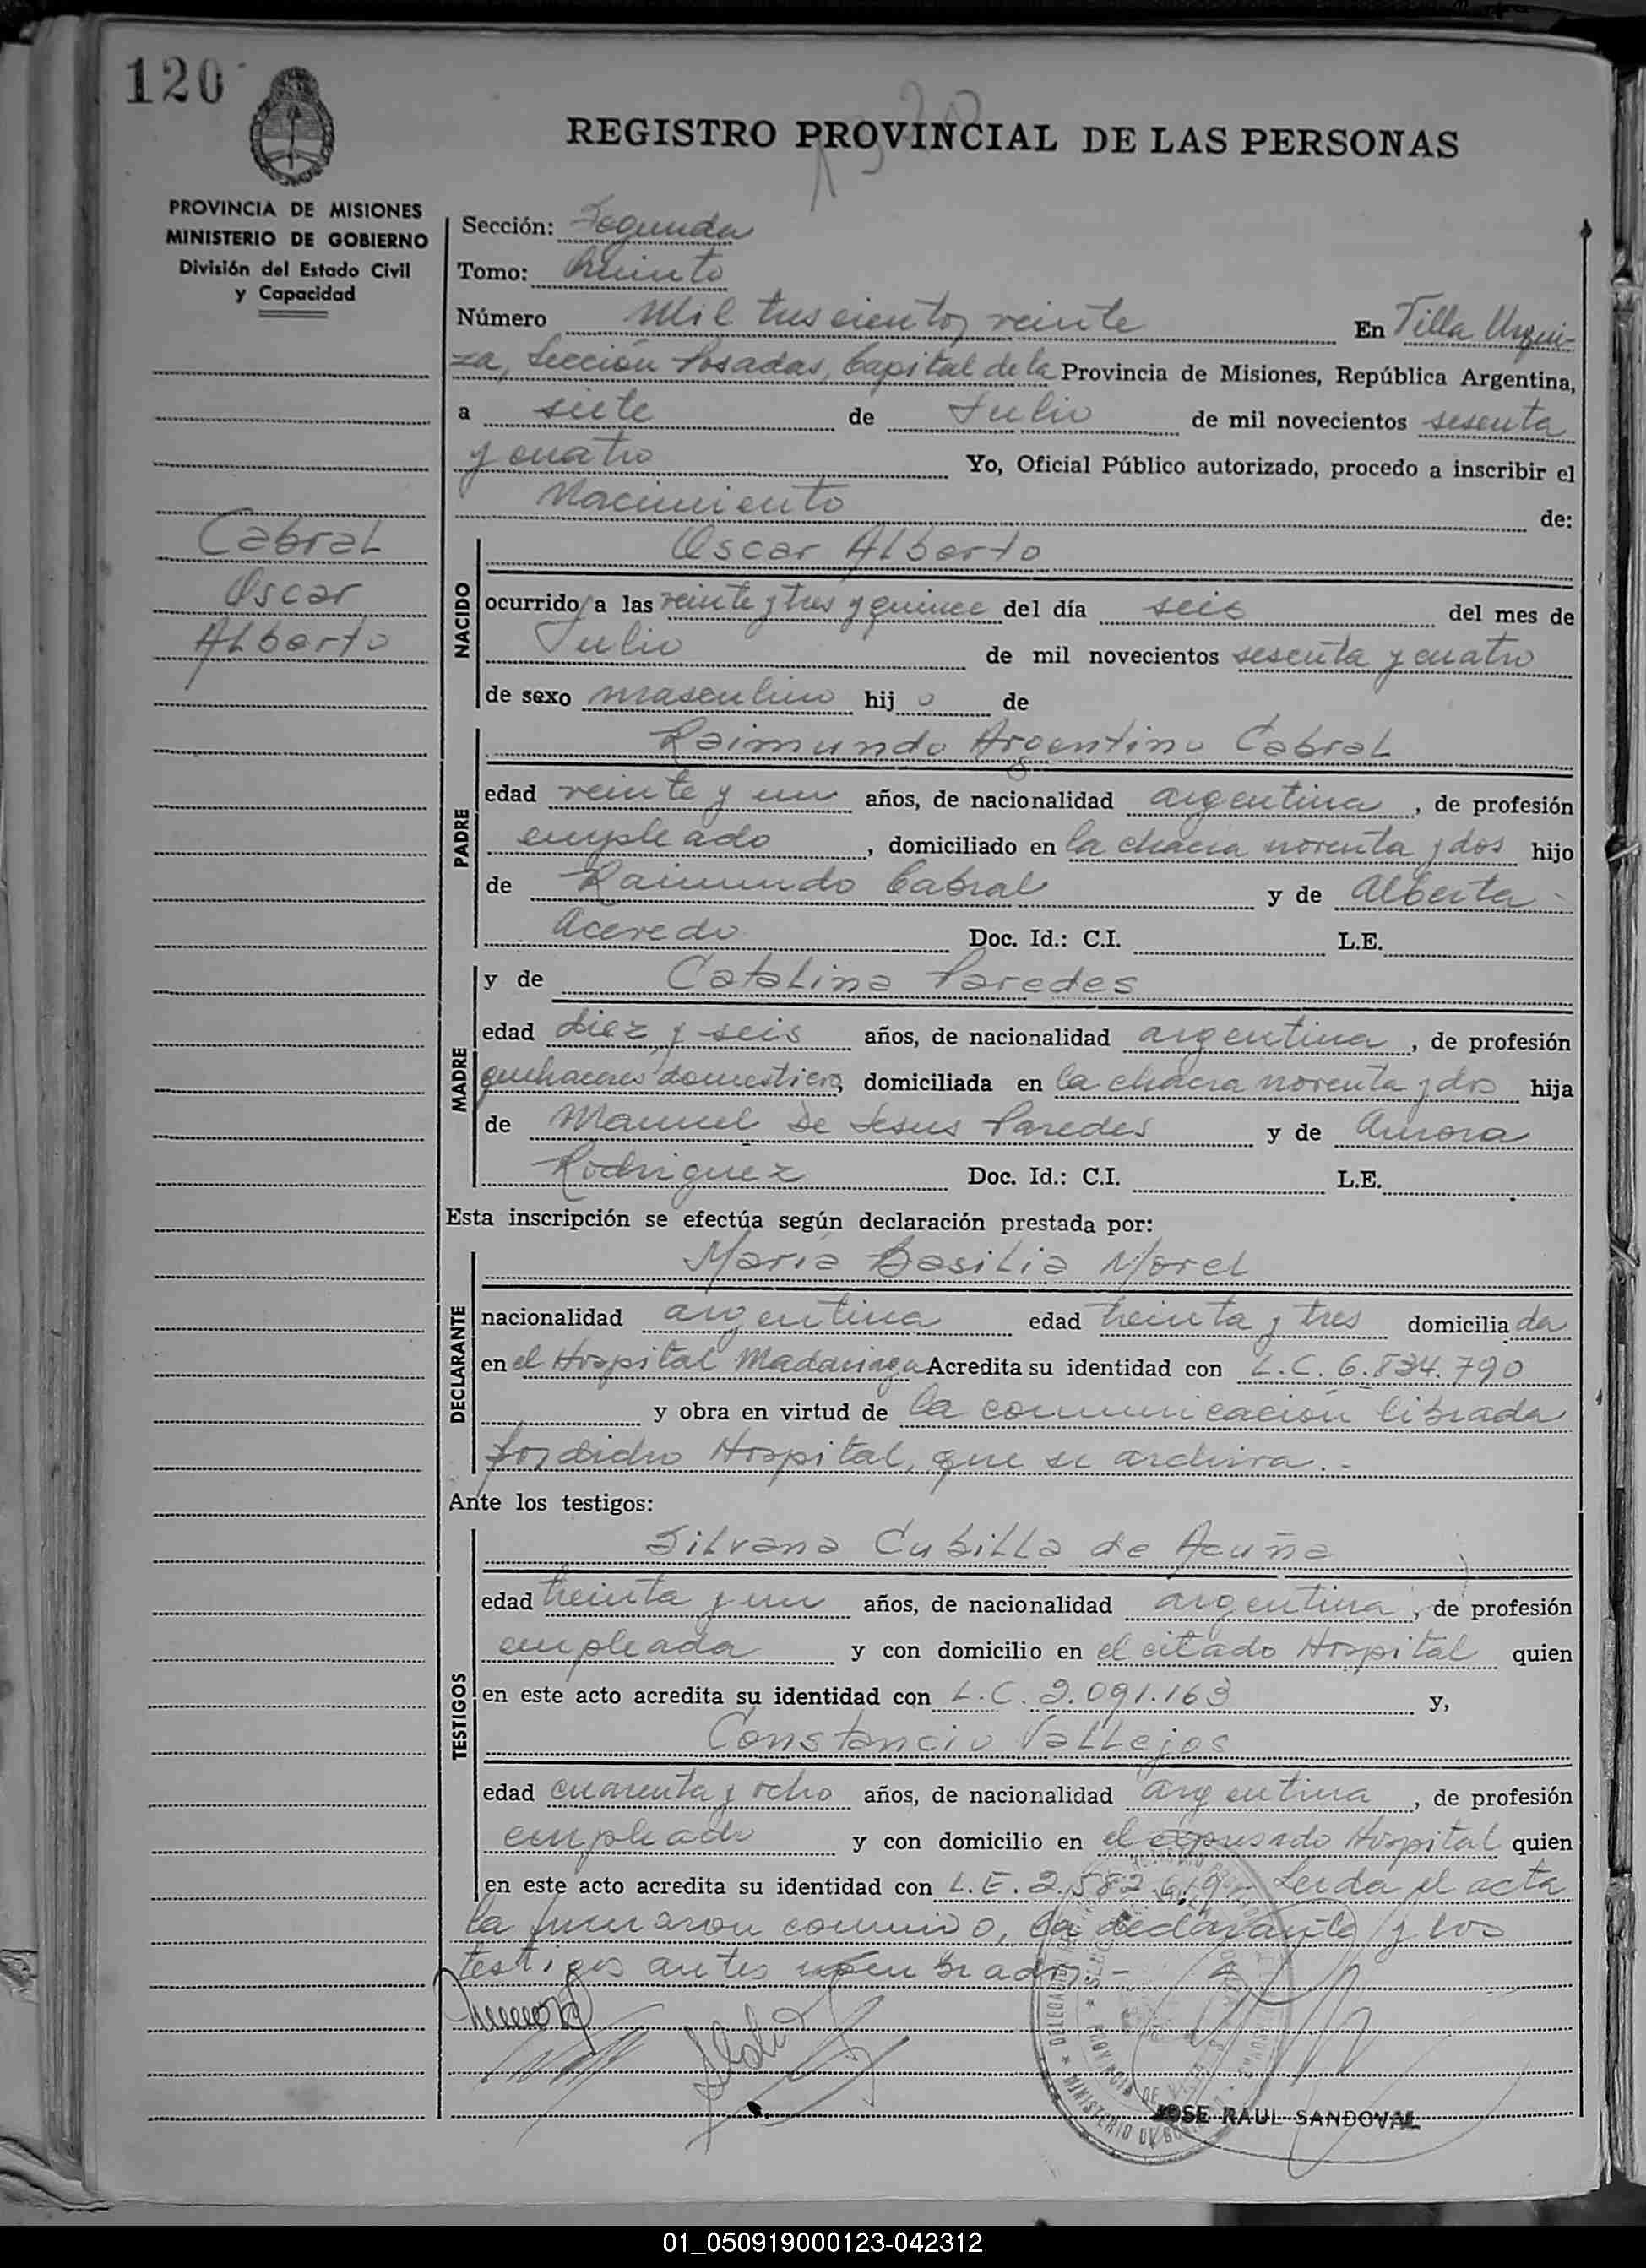 120
REGISTRO PROVINCIAL DE LAS PERSONAS
1320
PROVINCIA DE MISIONES
MINISTERIO DE GOBIERNO
División del Estado Civil
y Capacidad
Cabral
Oscar
Alberto
Sección: Segunda
Tomo: Quinto
Número Mil trescientos veinte En Villa Urqui-
za, Sección Posadas, Capital de la Provincia de Misiones, República Argentina,
a siete de Julio de mil novecientos sesenta
y cuatro Yo, Oficial Público autorizado, procedo a inscribir el
Nacimiento de:
NACIDO
Oscar Alberto
ocurrido a las veinte y tres y quince del día seis del mes de
Julio de mil novecientos sesenta y cuatro
de sexo masculino hij o de
PADRE
Raimundo Argentino Cabral
edad veinte y un años, de nacionalidad argentina, de profesión
empleado, domiciliado en la chacra noventa y dos hijo
de Raimundo Cabral y de Alberta
Acevedo Doc. Id.: C.I. L.E.
MADRE
y de Catalina Paredes
edad diez y seis años, de nacionalidad argentina, de profesión
quehaceres domesticos, domiciliada en la chacra noventa y dos hija
de Manuel De Jesus Paredes y de Aurora
Rodriguez Doc. Id.: C.I. L.E.
Esta inscripción se efectúa según declaración prestada por:
DECLARANTE
Maria Basilia Morel
nacionalidad argentina edad treinta y tres domicilia da
en el Hospital Madariaga Acredita su identidad con L.C. 6.834.790
y obra en virtud de la comunicación librada
por dicho Hospital, que se archiva.-
Ante los testigos:
TESTIGOS
Silvana Cubilla de Acuña
edad treinta y un años, de nacionalidad argentina, de profesión
empleada y con domicilio en el citado Hospital quien
en este acto acredita su identidad con L.C. 2.091.163 y,
Constancio Vallejos
edad cuarenta y ocho años, de nacionalidad argentina, de profesión
empleado y con domicilio en el expresado Hospital quien
en este acto acredita su identidad con L.E. 2.582.619- Leida el acta
la firmaron conmigo, la declarante y los
testigos antes nombrados.-
JOSE RAUL SANDOVAL
01_050919000123-042312